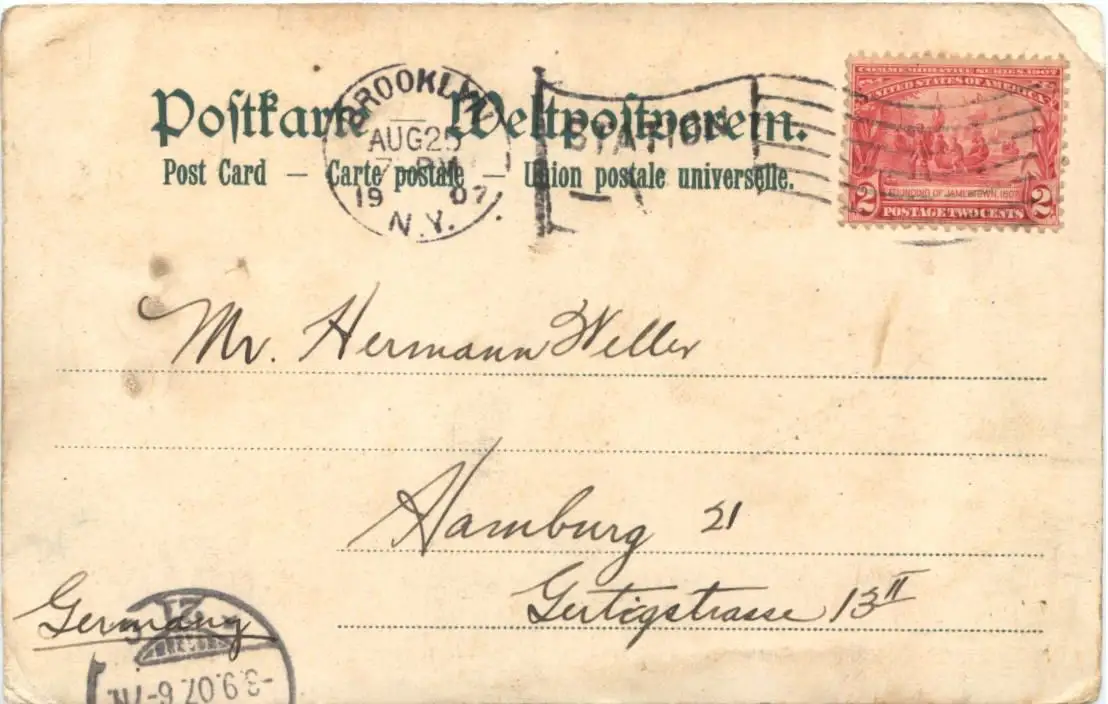 Postkarte — Weltpostverein.
Post Card — Carte postale — Union postale universelle.
BROOKLYN
AUG 25
7 - PM
19 07
N.Y.
STATION
COMMEMORATIVE SERIES 1907
UNITED STATES OF AMERICA
FOUNDING OF JAMESTOWN, 1607
2 POSTAGE TWO CENTS 2
Mr. Hermann Weller
Hamburg 21
Gertigstrasse 13 II
Germany
21
-3.9.07.6-7N.